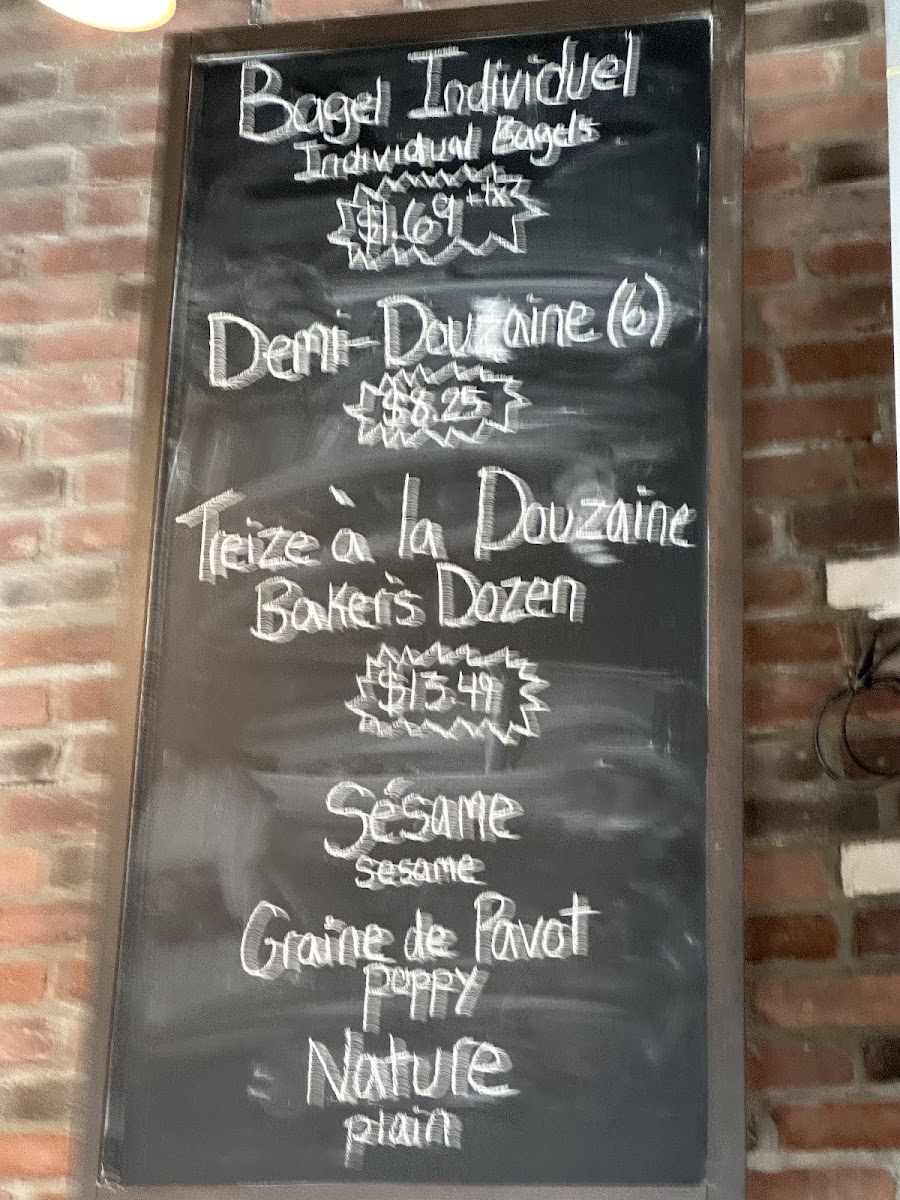 Bagel Individuel
Individual Bagels
$1.69 +tx
Demi-Douzaine (6)
$8.25
Treize à la Douzaine
Baker's Dozen
$13.49
Sésame
sesame
Graine de Pavot
poppy
Nature
plain